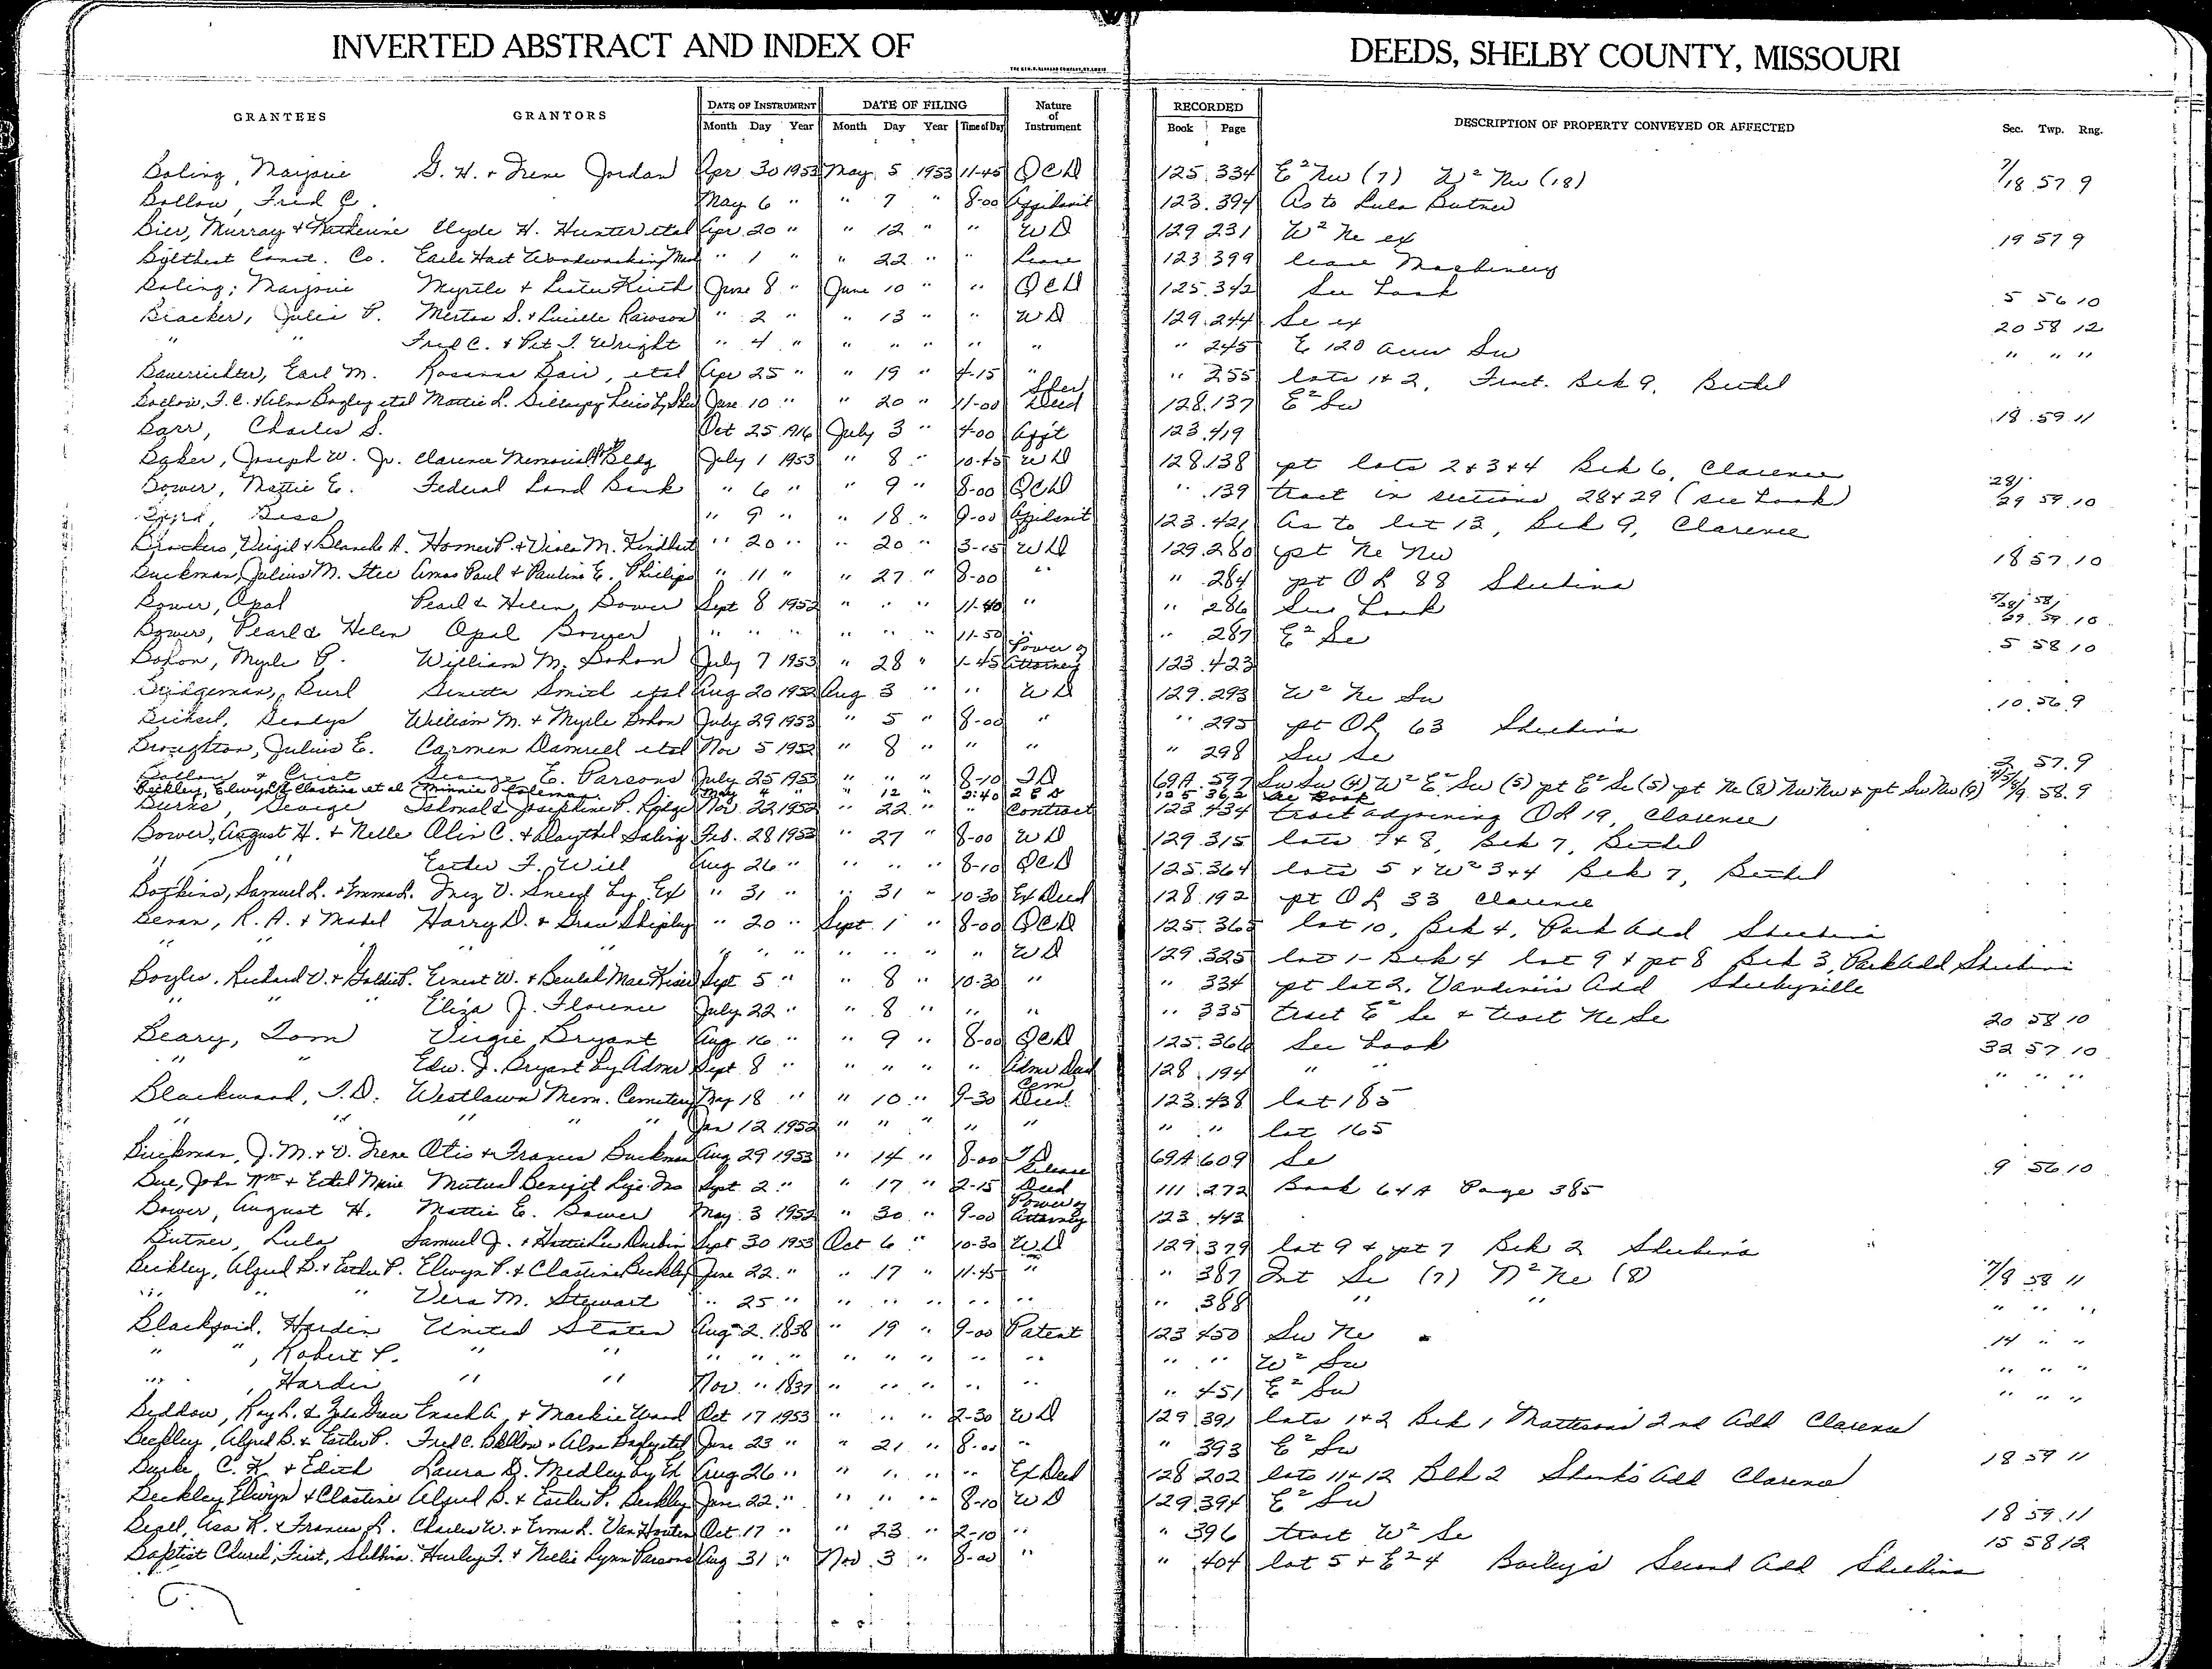 INVERTED ABSTRACT AND INDEX OF DEEDS, SHELBY COUNTY, MISSOURI
GRANTEES GRANTORS DATE OF INSTRUMENT DATE OF FILING Nature of Instrument RECORDED DESCRIPTION OF PROPERTY CONVEYED OR AFFECTED Sec. Twp. Rng.
Month Day Year Month Day Year Time of Day Book Page
Boling, Marjorie G. H. + Irene Jordan Apr 30 1953 May 5 1953 11-45 QCD 125 334 E² Nw (7) W² Nw (18) 7/18 57 9
Bollow, Fred C. May 6 " " 7 " 8-00 Affidavit 123 394 As to Lula Butner
Bier, Murray + Katherine Clyde H. Hunter etal Apr 20 " " 12 " " WD 129 231 W² Ne ex 19 57 9
Const. Co. Earle Hart Woodworking " 1 " " 22 " " Lease 123 399 lease Machinery
Boling, Marjorie Myrtle + Lester Keith June 8 " June 10 " " QCD 125 342 See book 5 56 10
Bracker, Julia P. Merton S. + Lucille Rawson " 2 " " 13 " " WD 129 244 Se ex 20 58 12
" " Fred C. + Pet I. Wright " 4 " " " " " " " 245 E 120 acres Sw " " "
Bauerrichter, Earl M. Rosanna Bair, etal Apr 25 " " 19 " 4-15 " " 255 lots 1+2, Fract. Blk 9, Bethel
Bollow, F. C. + Alma Bagley etal Mattie L. June 10 " " 20 " 11-00 Sher Deed 128 137 E² Sw 18 59 11
Barr, Charles S. Oct 25 1916 July 3 " 4-00 Afft 123 419
Baker, Joseph W. Jr. Clarence Memorial Bldg July 1 1953 " 8 " 10-45 WD 128 138 pt lots 2+3+4 Blk 6, Clarence
Bower, Mattie E. Federal Land Bank " 6 " " 9 " 8-00 QCD " 139 tract in sections 28+29 (see book) 28/29 59 10
Byrd, Bess " 9 " " 18 " 9-00 Affidavit 123 421 As to lot 13, Blk 9, Clarence
Virgil + Blanche A. Homer P. + Viola M. " 20 " " 20 " 3-15 WD 129 280 pt Ne Nw 18 57 10
Buckman, Julius M. Amos Paul + Pauline E. Phillips " 11 " " 27 " 8-00 " " 284 pt OL 88 Shelbina
Bower, Opal Pearl & Helen Bower Sept 8 1952 " " " 11-40 " " 286 See book
Bower, Pearl & Helen Opal Bower " " " " " " 11-50 " " 287 E² Se 5 58 10
Bohon, Myrle P. William M. Bohon July 7 1953 " 28 " 1-45 Power of Attorney 123 423
Bridgeman, Burl Smith etal Aug 20 1952 Aug 3 " " WD 129 293 W² Ne Sw 10 56 9
Bichsel, Gladys William M. + Myrle Bohon July 29 1953 " 5 " 8-00 " " 295 pt OL 63 Shelbina
Broughton, Julius E. Carmen Damrell etal Nov 5 1952 " 8 " " " " 298 Sw Se 2 57 9
Bollow & Crist George E. Parsons July 25 1953 " " " 8-10 TD 69A 597 Sw Sw (4) W² E² Sw (5) pt E² Se (5) pt Ne (8) Nw Nw + pt Sw Nw (9) 4/5/8/9 58 9
Beckley, Elwyn & Clastine et al Minnie Coleman May 4 " " 12 " 2:40 QCD 125 362 See Book
Burke, George & Josephine P. Nov. 22 1952 " 22 " " Contract 123 434 tract adjoining OL 19, Clarence
Bower, August H. + Nelle Olin C. + Daythel Saling Feb. 28 1953 " 27 " 8-00 WD 129 315 lots 7+8, Blk 7, Bethel
" " Esther F. Will Aug 26 " " " " 8-10 QCD 125 364 lots 5 + W² 3+4 Blk 7, Bethel
Botkins, Samuel L. + Emma L. Inez V. Sneed by Ex " 31 " " 31 " 10-30 Ex Deed 128 192 pt OL 33 Clarence
Bevan, R. A. + Mabel Harry D. + Grace Shipley " 20 " Sept 1 " 8-00 QCD 125 365 lot 10, Blk 4, Park Add Shelbina
" " " " " " " " " " " WD 129 325 lot 1 - Blk 4 lot 9 + pt 8 Blk 3, Park Add Shelbina
Boyles, Richard V. + Goldie P. Ernest W. + Beulah Mae Kiser Sept 5 " " 8 " 10-30 " " 334 pt lot 2, Vandiver's Add Shelbyville
" " " Eliza J. Florence July 22 " " 8 " " " " 335 tract E² Se + tract Ne Se 20 58 10
Beary, Tom Virgie Bryant Aug 16 " " 9 " 8-00 QCD 125 366 See book 32 57 10
" " Edw. J. Bryant by Admr Sept 8 " " " " " Admr Deed 128 194 " " " " "
Blackwood, T. D. Westlawn Mem. Cemetery May 18 " " 10 " 9-30 Cem Deed 123 438 lot 185
" " " " " Jan 12 1952 " " " " " " " lot 165
Buckman, J. M. + V. Irene Otis + Frances Buckman Aug 29 1953 " 14 " 8-00 TD 69A 609 Se 9 56 10
Bue, John Wm + Ethel Marie Mutual Benefit Life Ins Sept 2 " " 17 " 2-15 Release Deed 111 272 Book 64A Page 385
Bower, August H. Mattie E. Bower May 3 1952 " 30 " 9-00 Power of Attorney 123 443
Butner, Lula Samuel J. + Hattie Lee Durbin Sept 30 1953 Oct 6 " 10-30 WD 129 379 lot 9 + pt 7 Blk 2 Shelbina
Beckley, Alfred B. + Esther P. Elwyn P. + Clastine Beckley June 22 " " 17 " 11-45 " " 387 Int Se (7) N² Ne (8) 7/8 58 11
" " " Vera M. Stewart " 25 " " " " " " " 388 " " " " "
Blackford, Hardin United States Aug 2 1838 " 19 " 9-00 Patent 123 450 Sw Ne 14 " "
" ", Robert P. " " " " " " " " " " " " W² Sw " " "
" , Hardin " " Nov. " 1837 " " " " " " 451 E² Sw " " "
Beddow, Roy L. & Zola Enoch A. + Mackie Wood Oct 17 1953 " " " 2-30 WD 129 391 lots 1+2 Blk 1 Matteson's 2nd Add Clarence
Beckley, Alfred B. + Esther P. Fred C. Bollow + Alma Bagley etal June 23 " " 21 " 8-00 " " 393 E² Sw 18 59 11
Burke, C. K. + Edith Laura D. Medley by Ex Aug 26 " " " " " Ex Deed 128 202 lots 11+12 Blk 2 Shanks Add Clarence
Beckley Elwyn + Clastine Alfred B. + Esther P. Beckley June 22 " " " " 8-10 WD 129 394 E² Sw 18 59 11
Bezell, Asa R. + Frances L. Charles W. + Erma L. Van Houten Oct. 17 " " 23 " 2-10 " " 396 tract W² Se 15 58 12
Baptist Church, First, Shelbina Hurley F. + Nellie Lynn Parsons Aug 31 " Nov 3 " 8-00 " " 404 lot 5 + E² 4 Bailey's Second Add Shelbina